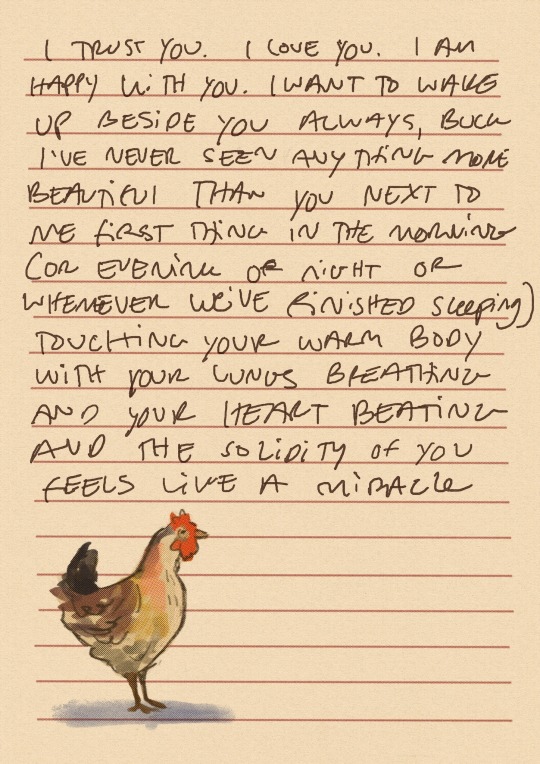 I TRUST YOU. I LOVE YOU. I AM
HAPPY WITH YOU. I WANT TO WAKE
UP BESIDE YOU ALWAYS, BUCK
I'VE NEVER SEEN ANYTHING MORE
BEAUTIFUL THAN YOU NEXT TO
ME FIRST THING IN THE MORNING
(OR EVENING OR NIGHT OR
WHENEVER WE'VE FINISHED SLEEPING)
TOUCHING YOUR WARM BODY
WITH YOUR LUNGS BREATHING
AND YOUR HEART BEATING
AND THE SOLIDITY OF YOU
FEELS LIKE A MIRACLE